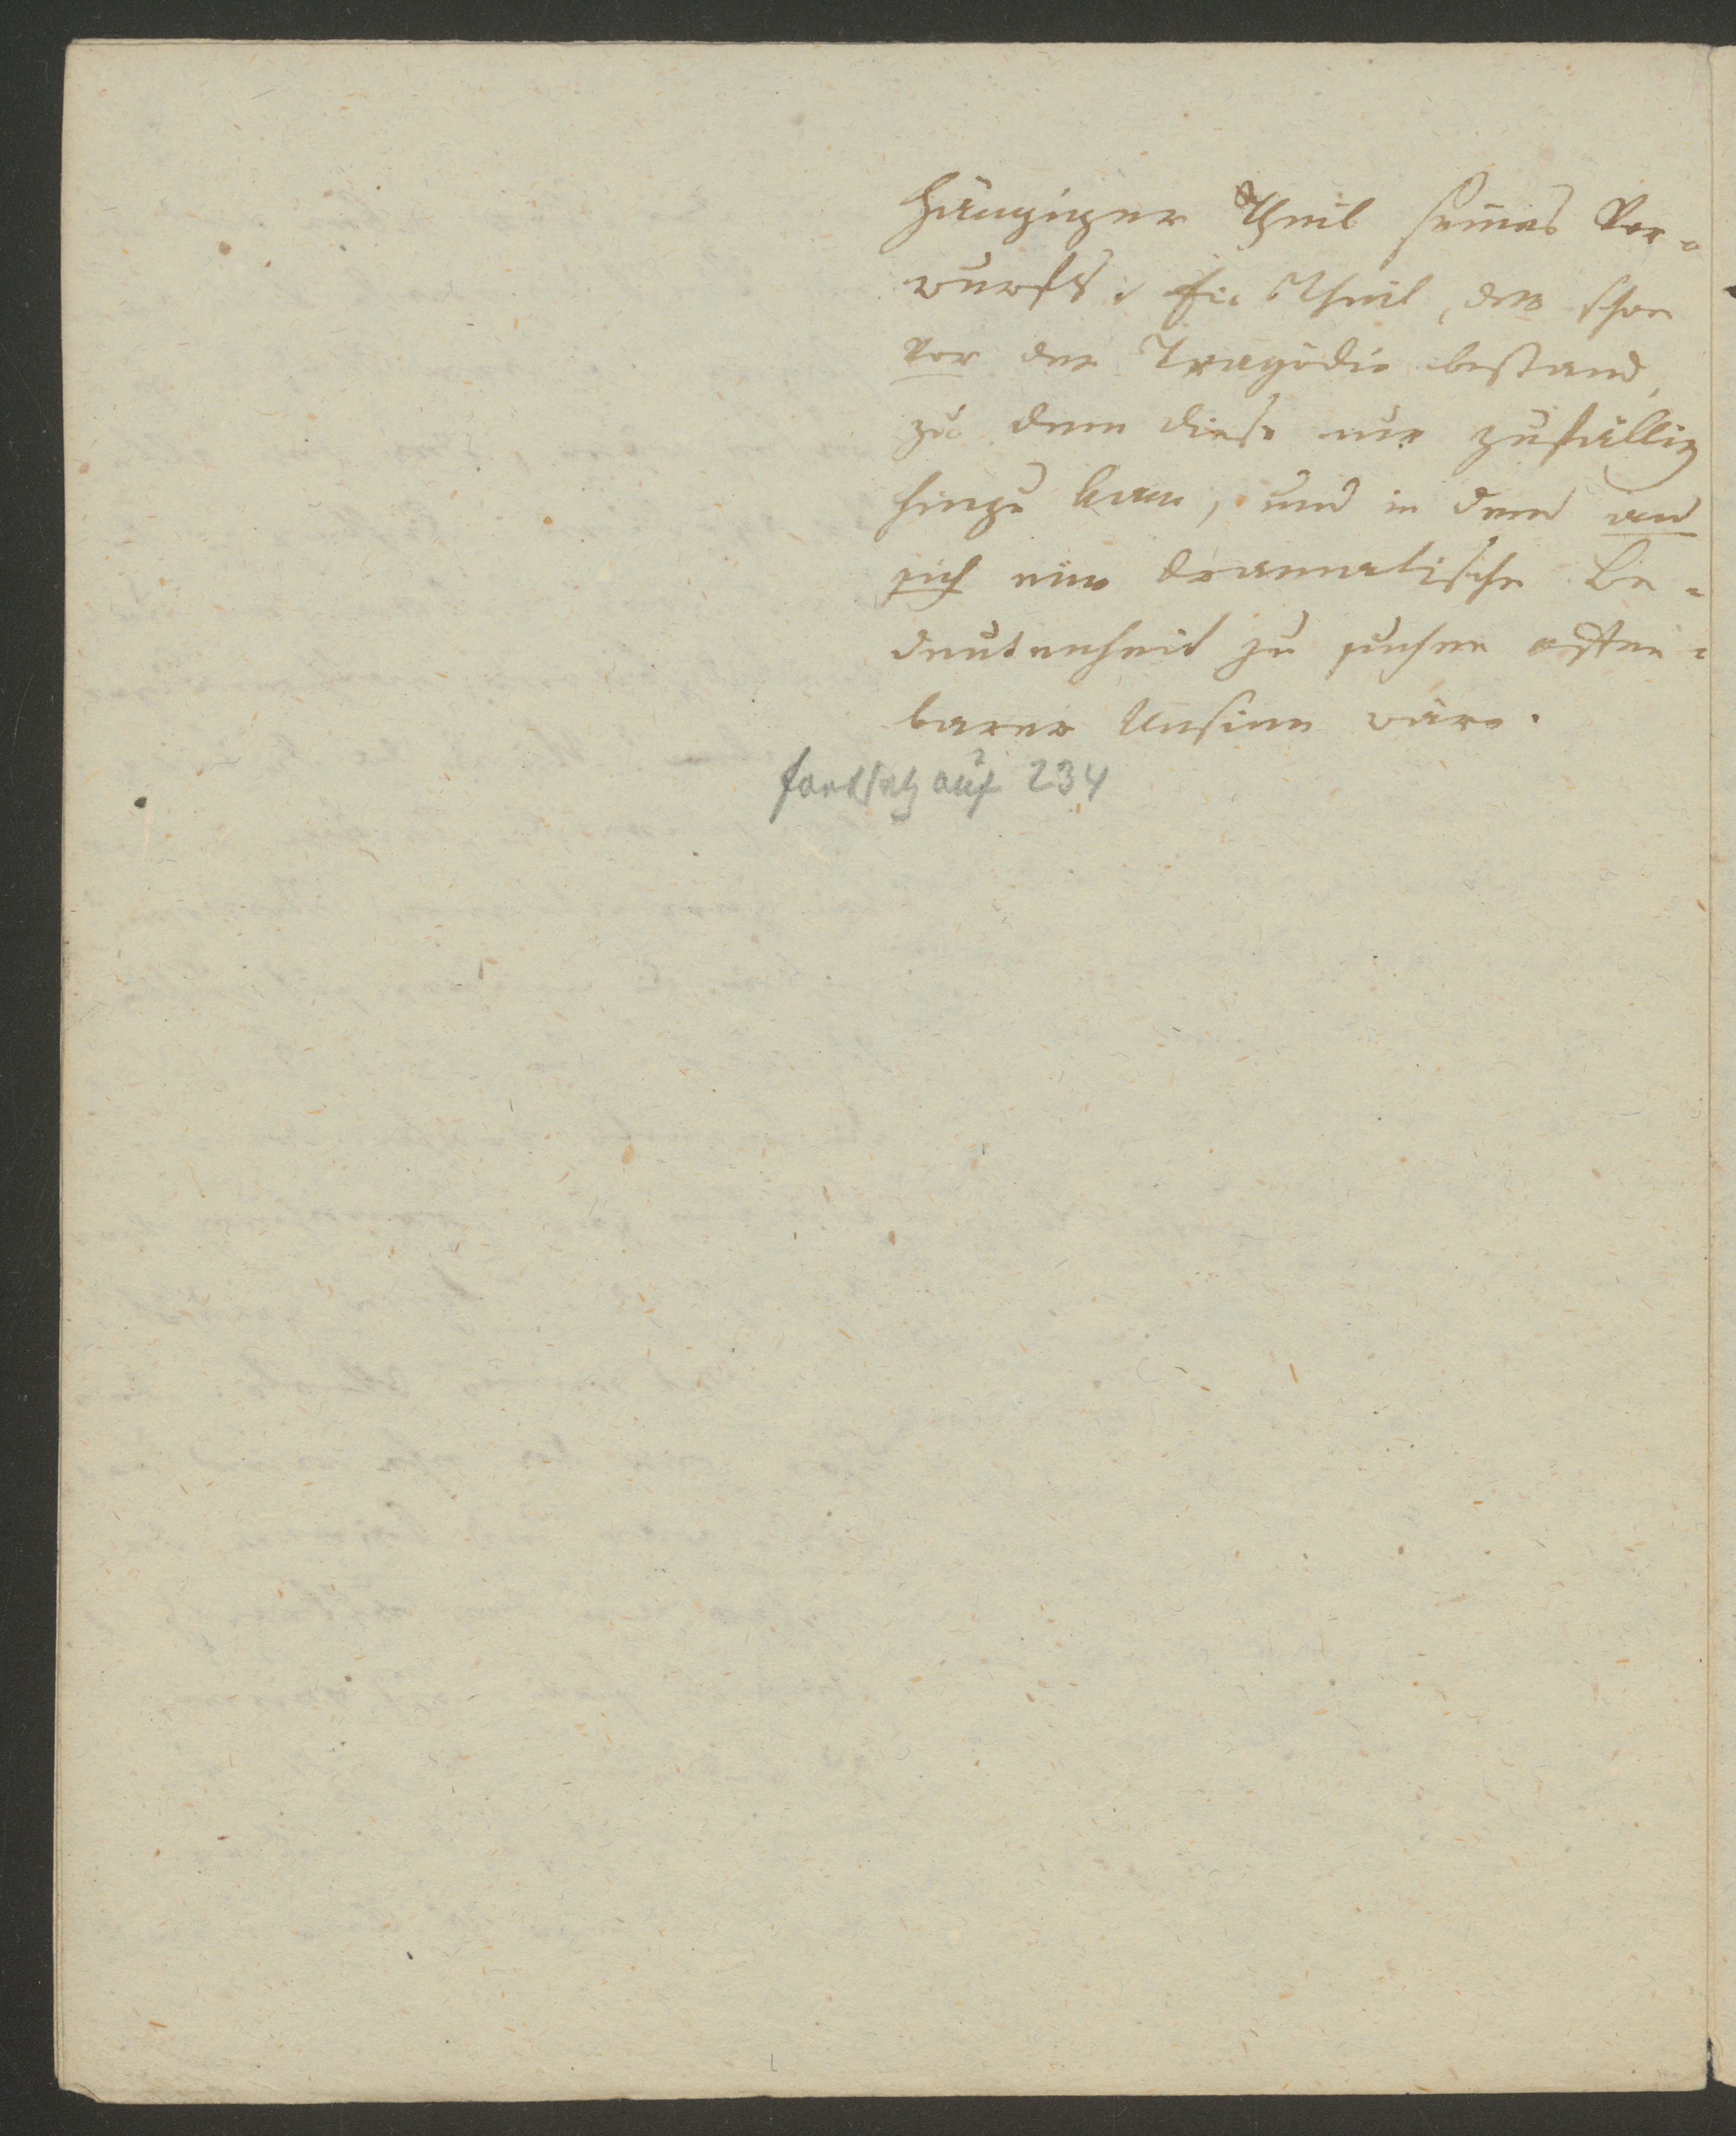 hängiger Theil seines Vor-
wurfs. Ein Theil, der schon
vor der Tragödie bestand,
zu dem diese nur zufällig
hinzu kam, und in dem an
sich eine dramatische Be-
deutenheit zu suchen offen-
barer Unsinn wäre.
fortsetz auf 234